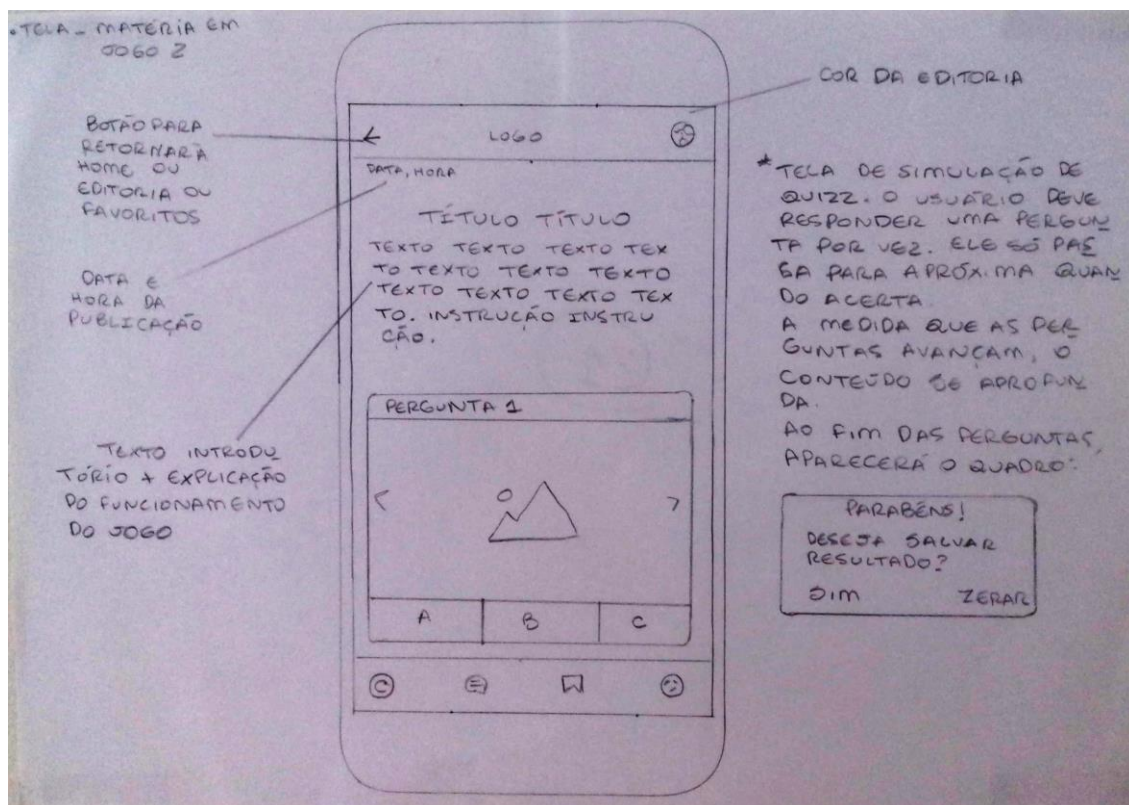 • TELA - MATÉRIA EM
JOGO 2
BOTÃO PARA
RETORNAR À
HOME OU
EDITORIA OU
FAVORITOS
DATA E
HORA DA
PUBLICAÇÃO
TEXTO INTRODU
TÓRIO + EXPLICAÇÃO
DO FUNCIONAMENTO
DO JOGO
LOGO
DATA, HORA
TÍTULO TÍTULO
TEXTO TEXTO TEXTO TEX
TO TEXTO TEXTO TEXTO
TEXTO TEXTO TEXTO TEX
TO. INSTRUÇÃO INSTRU
ÇÃO.
PERGUNTA 1
A B C
COR DA EDITORIA
* TELA DE SIMULAÇÃO DE
QUIZZ. O USUÁRIO DEVE
RESPONDER UMA PERGUN
TA POR VEZ. ELE SÓ PAS
SA PARA A PRÓXIMA QUAN
DO ACERTA.
A MEDIDA QUE AS PER
GUNTAS AVANÇAM, O
CONTEÚDO SE APROFUN
DA.
AO FIM DAS PERGUNTAS,
APARECERÁ O QUADRO:
PARABÉNS!
DESEJA SALVAR
RESULTADO?
SIM ZERAR